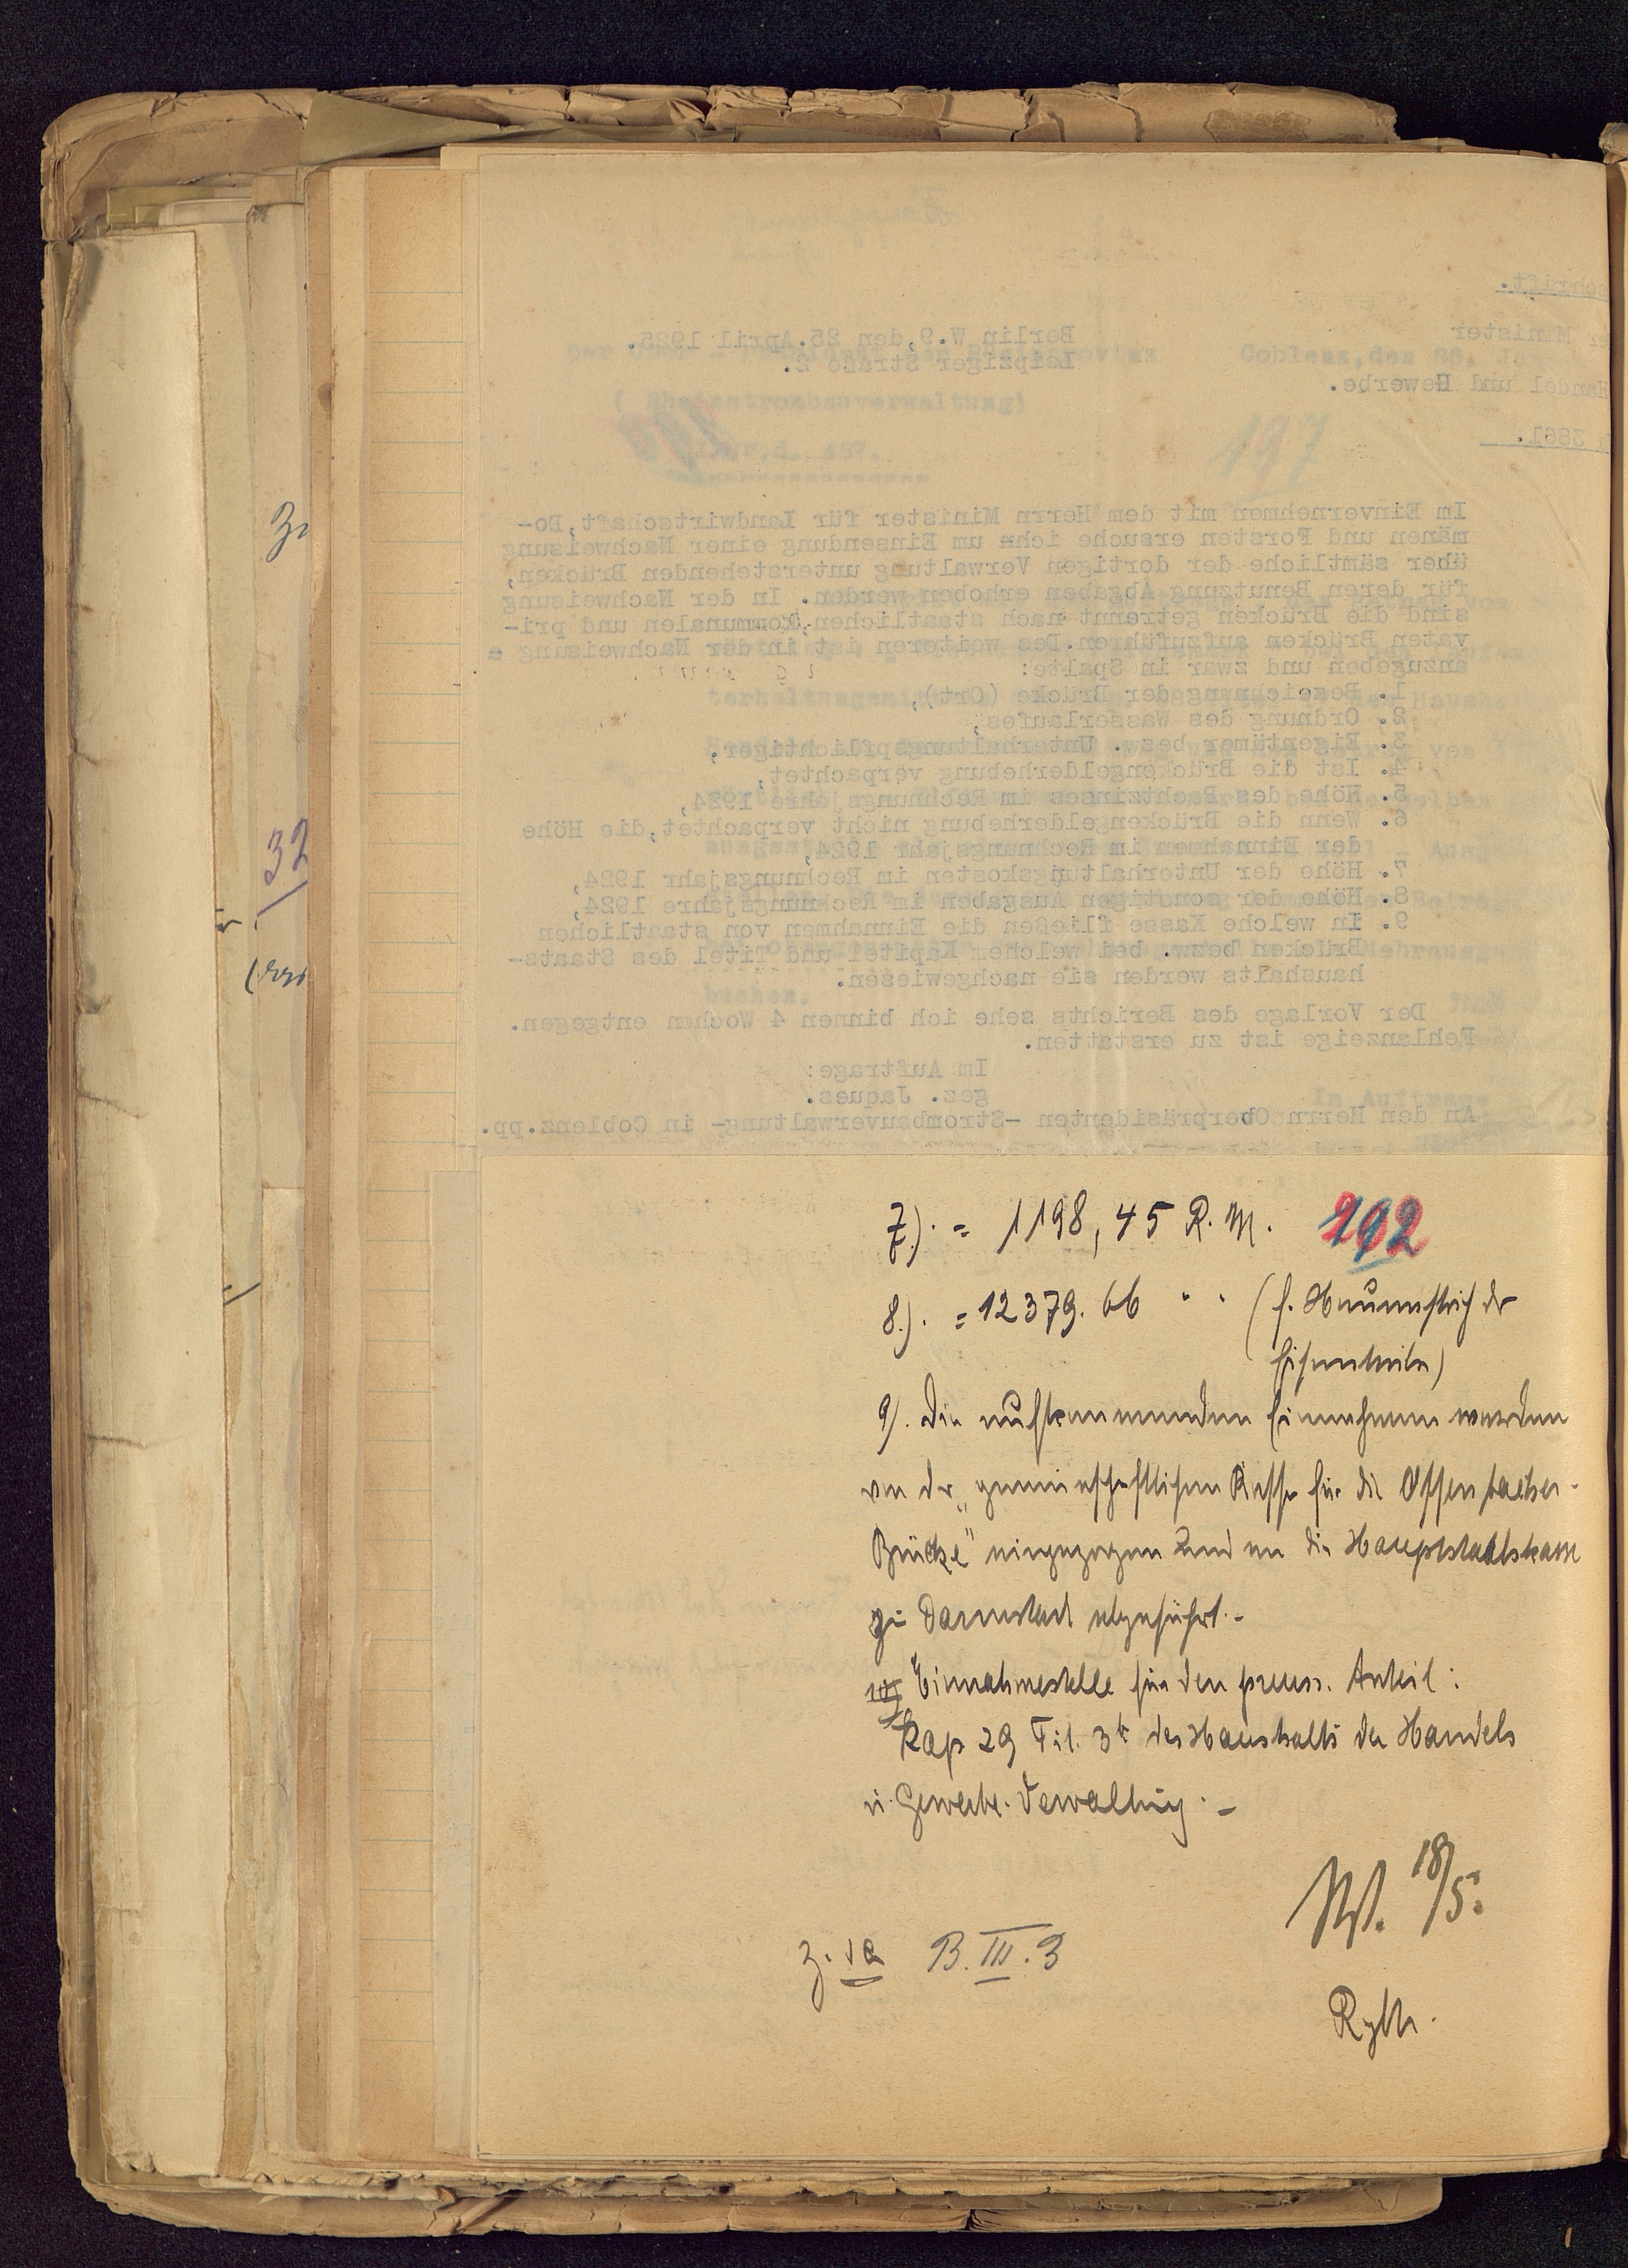 schrift.
er Minister
Handel und Gewerbe.
3861.
Berlin W.9,den 25.April 1925.
Leipziger Straße 2.
197
Im Einvernehmen mit dem Herrn Minister für Landwirtschaft,Do-
mänen und Forsten ersuche ich um Einsendung einer Nachweisung
über sämtliche der dortigen Verwaltung unterstehenden Brücken,
für deren Benutzung Abgaben erhoben werden. In der Nachweisung
sind die Brücken getrennt nach staatlichen,kommunalen und pri-
vaten Brücken aufzuführen.Des weiteren ist in der Nachweisung
anzugeben und zwar in Spalte:
1. Bezeichnung der Brücke (Ort),
2. Ordnung des Wasserlaufes,
3. Eigentümer bezw. Unterhaltungspflichtiger,
4. Ist die Brückengelderhebung verpachtet,
5. Höhe des Pachtzinses im Rechnungsjahre 1924,
6. Wenn die Brückengelderhebung nicht verpachtet,die Höhe
der Einnahmen im Rechnungsjahr 1924,
7. Höhe der Unterhaltungskosten im Rechnungsjahr 1924,
8. Höhe der sonstigen Ausgaben im Rechnungsjahre 1924,
9. In welche Kasse fließen die Einnahmen von staatlichen
Brücken bezw. bei welchem Kapitel und Titel des Staats-
haushalts werden sie nachgewiesen.
Der Vorlage des Berichts sehe ich binnen 4 Wochen entgegen.
Fehlanzeige ist zu erstatten.
Im Auftrage:
gez. Jaques.
An den Herrn Oberpräsidenten -Strombauverwaltung- in Coblenz.pp.
7.). = 1198,45 R.M. 192
8.). = 12379.66 " " (f. der
Eisenteile)
9). Die aufkommenden Einnahmen werden
von der „gemeinschaftlichen Kasse für die Offenbacher-
Brücke" eingezogen und an die Hauptstaatskasse
zu Darmstadt abgeführt.-
Einnahmestelle für den preuss. Anteil:
Kap 29 Tit. 3 des Haushalts der Handels
u. Gewerbe. Verwaltung.-
18/5.
z. d A B.III.3
32